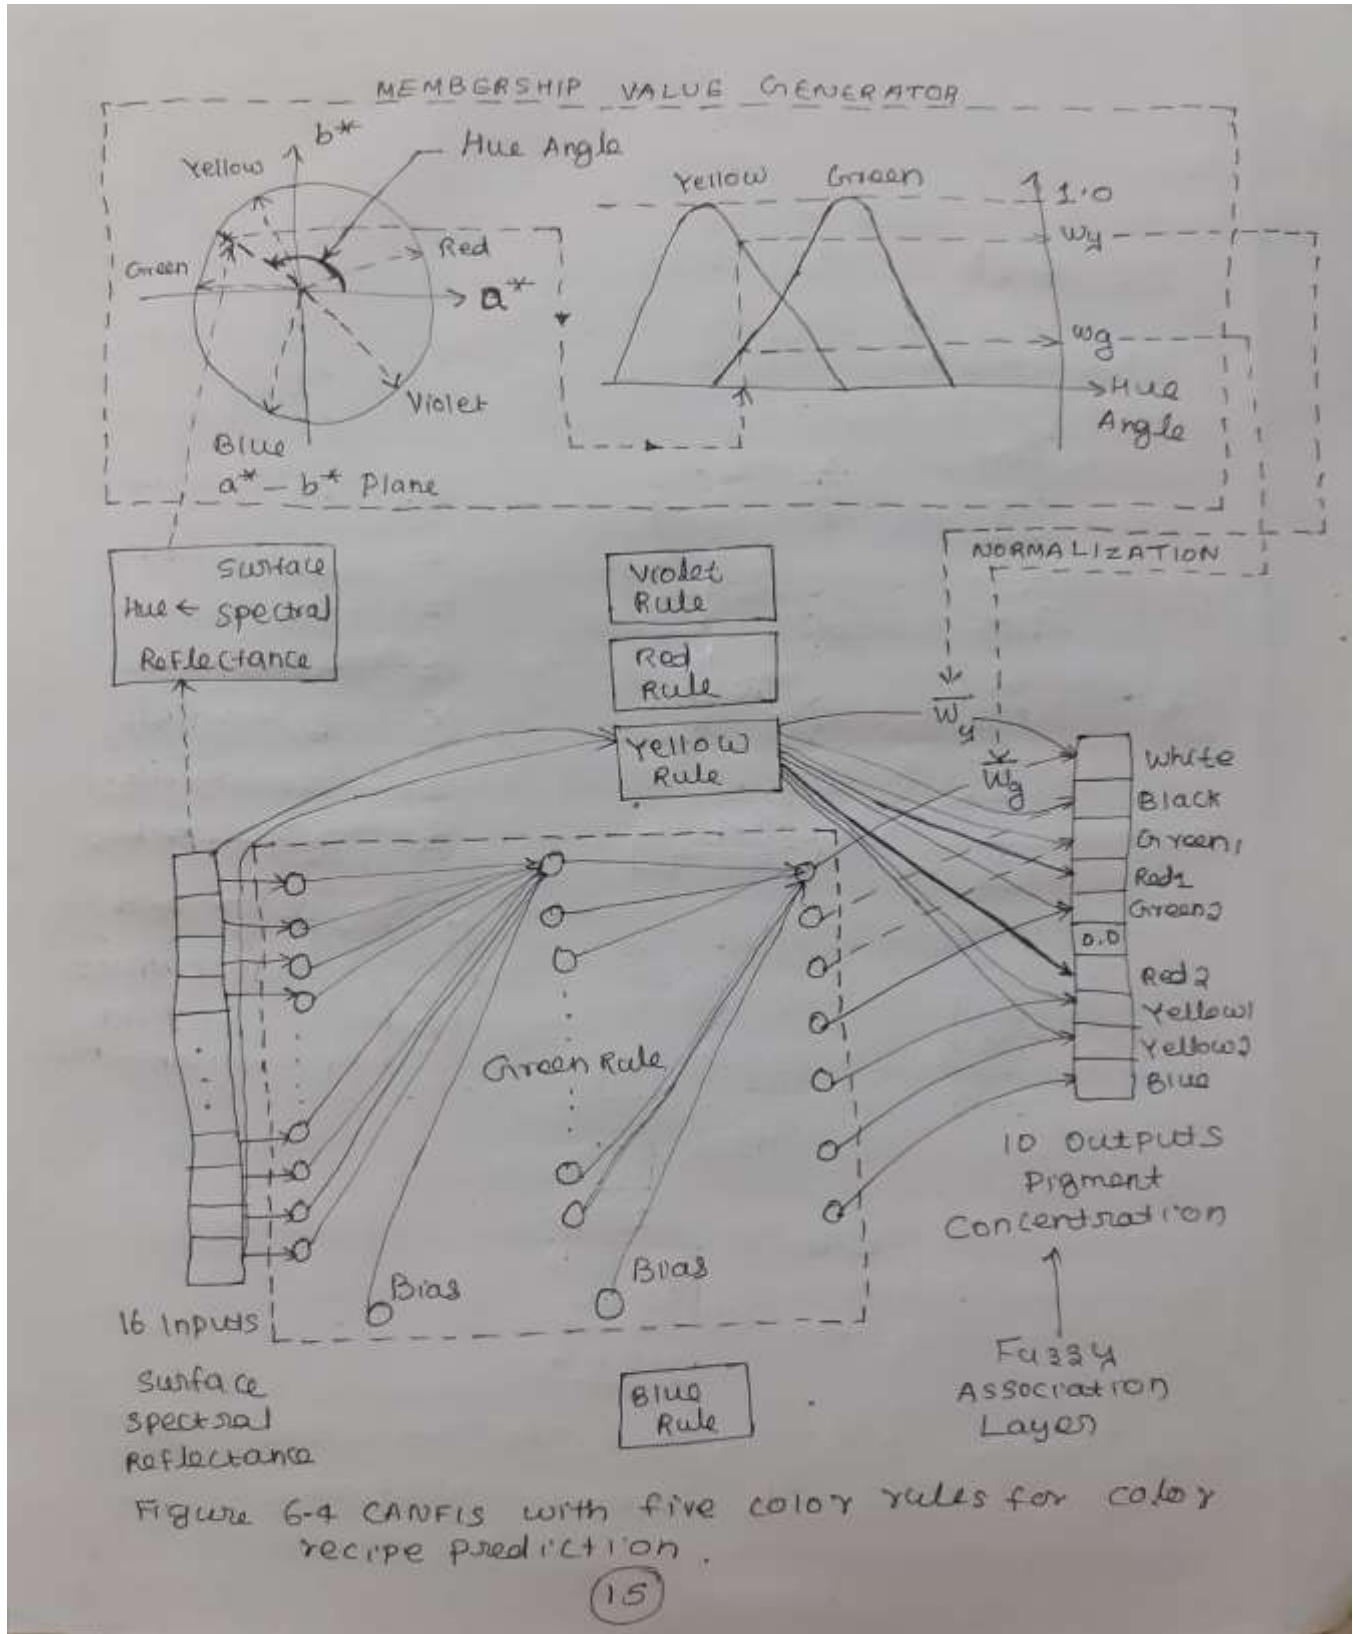 MEMBERSHIP VALUE GENERATOR
b*
Hue Angle
Yellow
Red
Green
a*
Violet
Blue
a* - b* Plane
Yellow Green
1.0
Wy
Wg
Hue
Angle
Surface
Hue ← Spectral
Reflectance
Violet
Rule
Red
Rule
Yellow
Rule
NORMALIZATION
Wy
Wg
White
Black
Green1
Red1
Green2
0.0
Red2
Yellow1
Yellow2
Blue
Green Rule
Bias
Bias
16 Inputs
Surface
Spectral
Reflectance
10 Outputs
Pigment
Concentration
Fuzzy
Association
Layer
Blue
Rule
Figure 6-4 CANFIS with five color rules for color
recipe prediction.
15